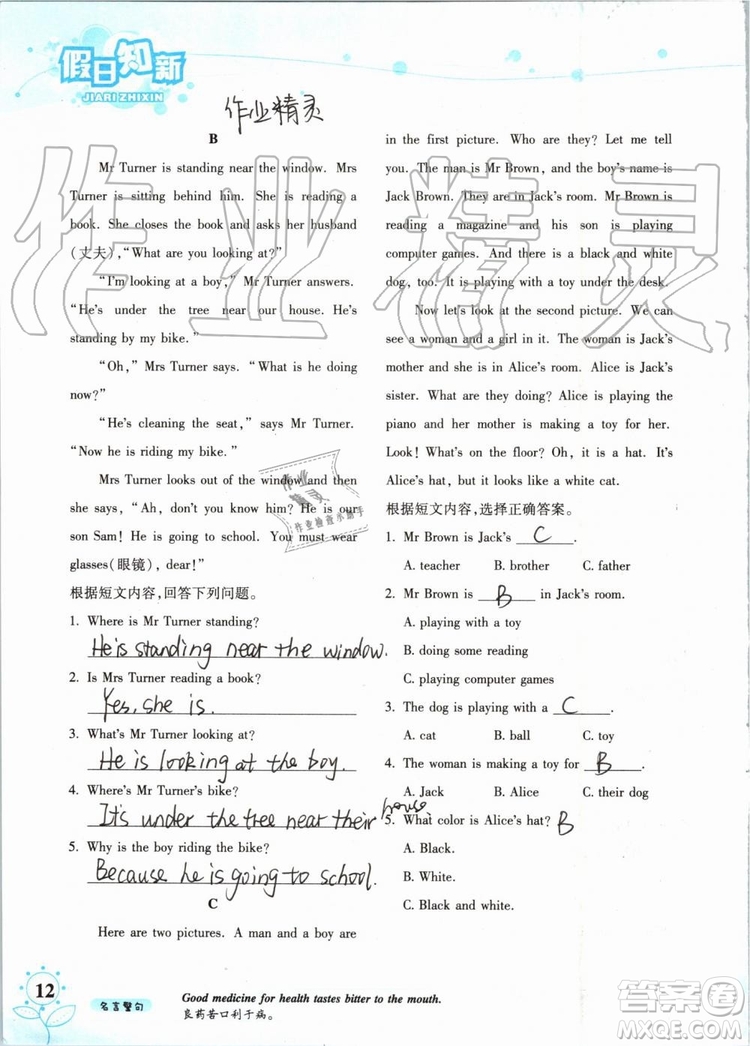 假日知新
JIARI ZHIXIN
作业精灵
B
Mr Turner is standing near the window. Mrs
Turner is sitting behind him. She is reading a
book. She closes the book and asks her husband
(丈夫),"What are you looking at?"
"I'm looking at a boy," Mr Turner answers.
"He's under the tree near our house. He's
standing by my bike."
"Oh," Mrs Turner says. "What is he doing
now?"
"He's cleaning the seat," says Mr Turner.
"Now he is riding my bike."
Mrs Turner looks out of the window and then
she says, "Ah, don't you know him? He is our
son Sam! He is going to school. You must wear
glasses(眼镜), dear!"
根据短文内容,回答下列问题。
1. Where is Mr Turner standing?
He is standing near the window.
2. Is Mrs Turner reading a book?
Yes, she is.
3. What's Mr Turner looking at?
He is looking at the boy.
4. Where's Mr Turner's bike?
It's under the tree near their house
5. Why is the boy riding the bike?
Because he is going to school.
C
Here are two pictures. A man and a boy are
in the first picture. Who are they? Let me tell
you. The man is Mr Brown, and the boy's name is
Jack Brown. They are in Jack's room. Mr Brown is
reading a magazine and his son is playing
computer games. And there is a black and white
dog, too. It is playing with a toy under the desk.
Now let's look at the second picture. We can
see a woman and a girl in it. The woman is Jack's
mother and she is in Alice's room. Alice is Jack's
sister. What are they doing? Alice is playing the
piano and her mother is making a toy for her.
Look! What's on the floor? Oh, it is a hat. It's
Alice's hat, but it looks like a white cat.
根据短文内容,选择正确答案。
1. Mr Brown is Jack's C.
A. teacher B. brother C. father
2. Mr Brown is B in Jack's room.
A. playing with a toy
B. doing some reading
C. playing computer games
3. The dog is playing with a C.
A. cat B. ball C. toy
4. The woman is making a toy for B.
A. Jack B. Alice C. their dog
5. What color is Alice's hat? B
A. Black.
B. White.
C. Black and white.
12
名言警句
Good medicine for health tastes bitter to the mouth.
良药苦口利于病。
作业精灵
作业
精灵
作业检查小助手
答案圈
MXQE.COM